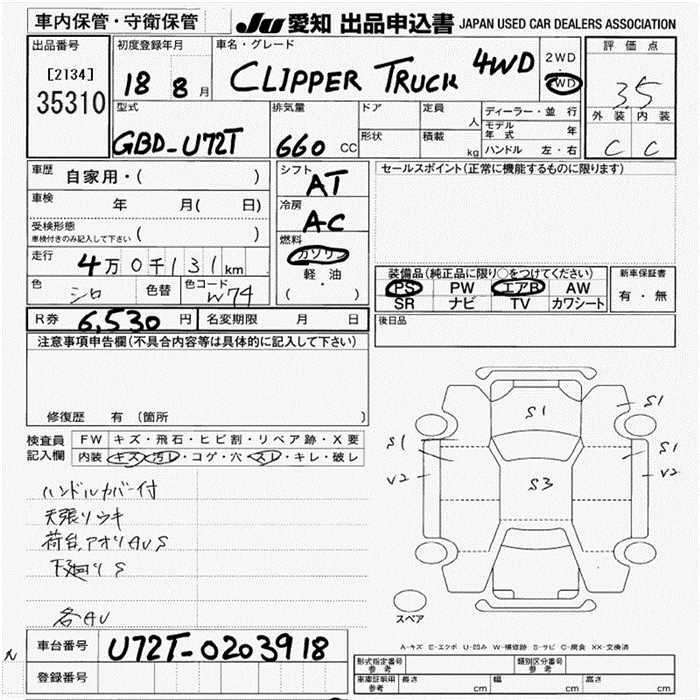 車内保管・守衛保管
JU 愛知 出品申込書 JAPAN USED CAR DEALERS ASSOCIATION
出品番号
[2134]
35310
初度登録年月
18 8 月
車名・グレード
CLIPPER TRUCK 4WD
2WD
4WD
評価点
3.5
外装 内装
C C
型式
GBD-U72T
排気量
660 CC
ドア
形状
定員
人
積載
kg
ディーラー・並行
モデル年式 年
ハンドル 左・右
車歴 自家用・( )
車検 年 月( 日)
受検形態
車検付きのみ記入して下さい ( )
走行 4万0千131km
色 シロ 色替 色コード W74
R券 6,530円 名変期限 月 日
シフト
AT
冷房
AC
燃料
ガソリン
軽・油
( )
セールスポイント(正常に機能するものに限ります)
装備品(純正品に限り○をつけてください)
PS PW エアB AW
SR ナビ TV カワシート
新車保証書
有・無
後日品
注意事項申告欄(不具合内容等は具体的に記入して下さい)
修復歴 有 (箇所 )
検査員記入欄
FW キズ・飛石・ヒビ割・リペア跡・X要
内装 キズ・汚レ・コゲ・穴・スレ・キレ・破レ
ハンドルカバー付
天張リウキ
荷台、アオリAUS
下廻りS
各AU
S1
S1
S1
S1
V2
V2
S3
スペア
A-キズ E-エクボ U-凹み W-補修跡 S-サビ C-腐食 XX-交換済
車台番号 U72T-0203918
登録番号
型式指定番号 参考
類別区分番号 参考
車庫証明用 参考
長さ cm 幅 cm 高さ cm